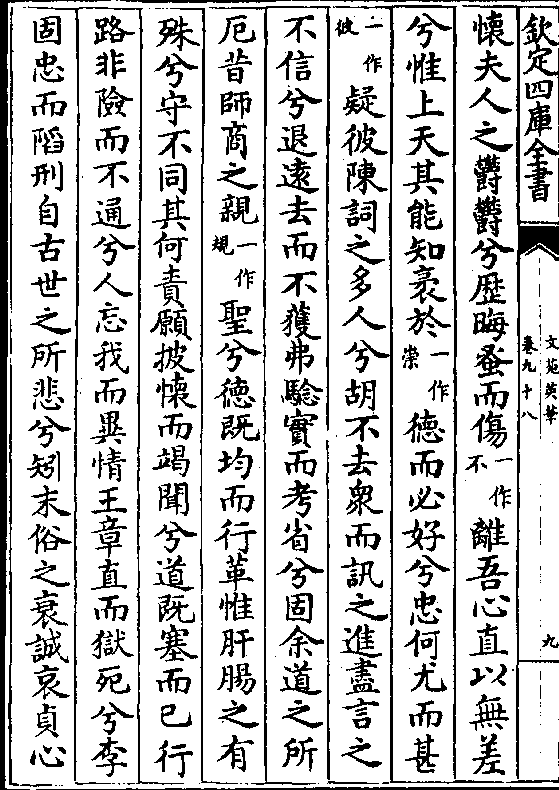 欽定四庫全書
文苑英華
卷九十八
九
懷夫人之鬱鬱兮歴晦蚤而傷一作不離吾心直以無差
兮惟上天其能知褱於一作崇德而必好兮忠何尤而甚
一作彼疑彼陳詞之多人兮胡不去衆而訊之進盡言之
不信兮退遠去而不獲弗驗實而考省兮固余道之所
厄昔師商之親一作規聖兮德既均而行革惟肝腸之有
殊兮守不同其何責願披懷而竭聞兮道既塞而已行
路非險而不通兮人忘我而異情王章直而獄死兮李
固忠而䧟刑自古世之所悲兮矧末俗之衰誠哀貞心